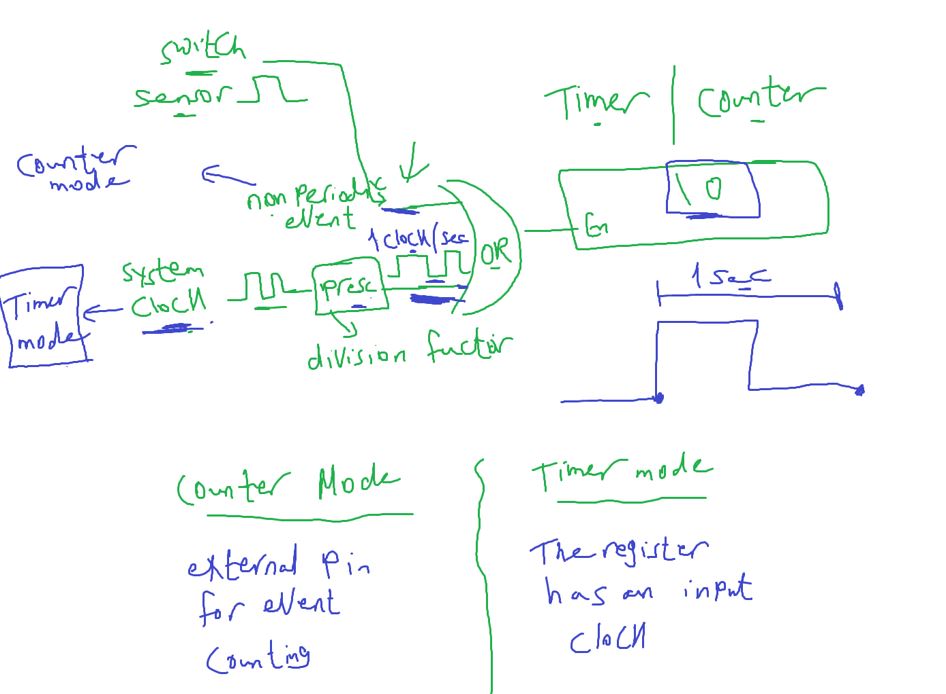 switch
sensor
Timer | Counter
Counter
mode
non periodic
event
10
En
1 clock/sec
OR
system
clock
presc
Timer
mode
division factor
1 sec
Counter Mode
external pin
for event
counting
Timer mode
The register
has an input
clock